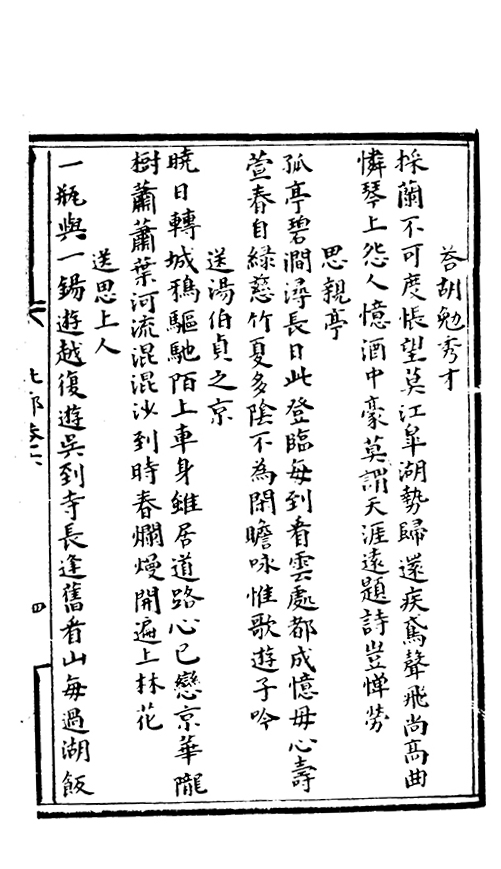 荅胡勉秀才
採蘭不可度悵望莫江臯湖勢歸還疾鴦聲飛尚髙曲
憐琴上怨人憶酒中豪莫謂天涯遠題詩豈憚勞
思親亭
孤亭碧澗潯長日此登臨每到看雲處都成憶母心壽
萱春自緑慈竹夏多陰不為閑瞻咏惟歌遊子吟
送湯伯貞之京
曉日轉城鴉驅馳陌上車身雖居道路心已戀京華隴
樹蕭蕭葉河流混混沙到時春爛熳開遍上林花
送思上人
一瓶與一錫遊越復遊吳到寺長逢舊看山每過湖飯
四